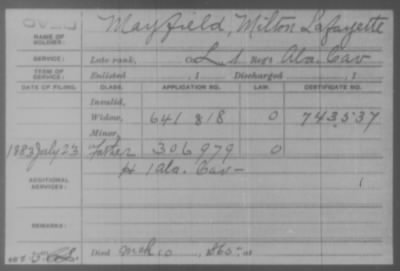 NAME OF SOLDIER: Mayfield, Milton Lafayette
SERVICE: Late rank, Co. L, 1 Reg't Ala. Cav
TERM OF SERVICE: Enlisted , 1 Discharged , 1
DATE OF FILING. CLASS. APPLICATION NO. LAW. CERTIFICATE NO.
Invalid,
Widow, 641 818 0 743,537
Minor,
1883 July 23 Father 306,979 0
ADDITIONAL SERVICES: H 1 Ala. Cav
REMARKS:
Died Mch 10, 186 at